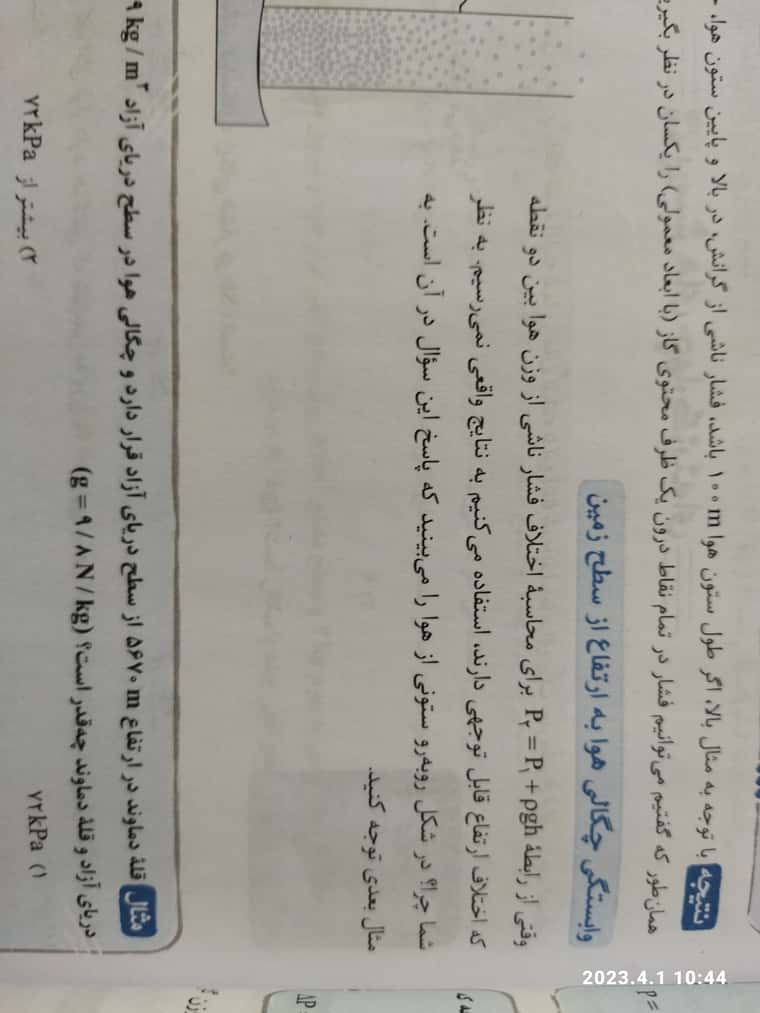 نتیجه با توجه به مثال بالا، اگر طول ستون هوا ۱۰۰ m باشد، فشار ناشی از گرانش، در بالا و پایین ستون هوا،
همان‌طور که گفتیم می‌توانیم فشار در تمام نقاط درون یک ظرف محتوی گاز (با ابعاد معمولی) را یکسان در نظر بگیریم
وابستگی چگالی هوا به ارتفاع از سطح زمین
وقتی از رابطهٔ P₂ = P₁ + ρgh برای محاسبهٔ اختلاف فشار ناشی از وزن هوا بین دو نقطه
که اختلاف ارتفاع قابل توجهی دارند، استفاده می‌کنیم به نتایج واقعی نمی‌رسیم. به نظر
شما چرا؟ در شکل روبه‌رو ستونی از هوا را می‌بینید که پاسخ این سؤال در آن است. به
مثال بعدی توجه کنید.
مثال قلهٔ دماوند در ارتفاع ۵۶۷۰ m از سطح دریای آزاد قرار دارد و چگالی هوا در سطح دریای آزاد ۹ kg / m³
دریای آزاد و قلهٔ دماوند چه‌قدر است؟ (g = ۹/۸ N / kg)
۱) ۷۲ kPa
۲) بیشتر از ۷۲ kPa
2023.4.1 10:44